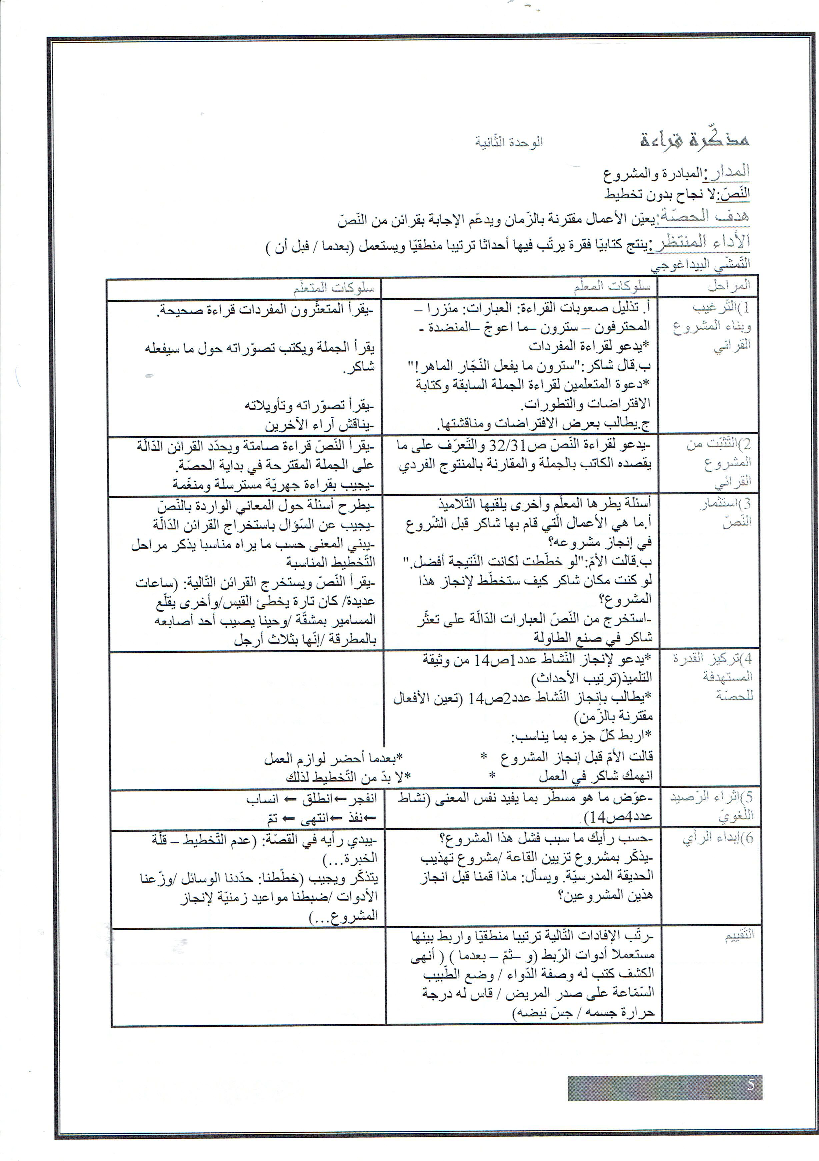 مذكّرة قراءة الوحدة الثّانية
المدار:المبادرة والمشروع
النّصّ:لا نجاح بدون تخطيط
هدف الحصّة:يعيّن الأعمال مقترنة بالزّمان ويدعّم الإجابة بقرائن من النّصّ
الأداء المنتظر:ينتج كتابيّا فقرة يرتّب فيها أحداثا ترتيبا منطقيّا ويستعمل (بعدما / قبل أن )
التّمشّي البيداغوجي
المراحل
سلوكات المعلّم
سلوكات المتعلّم
1)التّرغيب
وبناء المشروع
القرائي
أ. تذليل صعوبات القراءة: العبارات: منزرا –
المحترفون – سترون –ما اعوجّ –المنضدة -
*يدعو لقراءة المفردات
ب.قال شاكر:"سترون ما يفعل النّجّار الماهر!"
*دعوة المتعلمين لقراءة الجملة السابقة وكتابة
الافتراضات والتطورات.
ج.يطالب بعرض الافتراضات ومناقشتها.
-يقرأ المتعثّرون المفردات قراءة صحيحة.
يقرأ الجملة ويكتب تصوّراته حول ما سيفعله
شاكر.
-يقرأ تصوّراته وتأويلاته
-يناقش آراء الآخرين
2)التّثبّت من
المشروع
القرائي
-يدعو لقراءة النّصّ ص32/31 والتّعرّف على ما
يقصده الكاتب بالجملة والمقارنة بالمنتوج الفردي
-يقرأ النّصّ قراءة صامتة ويحدّد القرائن الدّالّة
على الجملة المقترحة في بداية الحصّة.
-يجيب بقراءة جهريّة مسترسلة ومنغّمة
3)استثمار
النّصّ
أسئلة يطرها المعلّم وأخرى يلقيها التّلاميذ
أ.ما هي الأعمال الّتي قام بها شاكر قبل الشّروع
في إنجاز مشروعه؟
ب.قالت الأمّ:"لو خطّطت لكانت النّتيجة أفضل."
لو كنت مكان شاكر كيف ستخطّط لإنجاز هذا
المشروع؟
-استخرج من النّصّ العبارات الدّالة على تعثّر
شاكر في صنع الطاولة
-يطرح أسئلة حول المعاني الواردة بالنّصّ
-يجيب عن السّؤال باستخراج القرائن الدّالّة
-يبني المعنى حسب ما يراه مناسبا يذكر مراحل
التّخطيط المناسبة
-يقرأ النّصّ ويستخرج القرائن التّالية: (ساعات
عديدة/ كان تارة يخطئ القيس/وأخرى يقلّع
المسامير بمشقّة /وحينا يصيب أحد أصابعه
بالمطرقة /إنّها بثلاث أرجل
4)تركيز القدرة
المستهدفة
للحصّة
*يدعو لإنجاز النّشاط عدد1ص14 من وثيقة
التلميذ(ترتيب الأحداث)
*يطالب بإنجاز النّشاط عدد2ص14 (تعين الأفعال
مقترنة بالزّمن)
*اربط كلّ جزء بما يناسب:
قالت الأمّ قبل إنجاز المشروع * *بعدما أحضر لوازم العمل
انهمك شاكر في العمل * *لا بدّ من التّخطيط لذلك
5)اثراء الرّصيد
اللّغويّ
-عوّض ما هو مسطّر بما يفيد نفس المعنى (نشاط
عدد4ص14).
انفجر←انطلق ← انساب
←نفذ ←انتهى ← تمّ
6)إبداء الرأي
-حسب رأيك ما سبب فشل هذا المشروع؟
-يذكّر بمشروع تزيين القاعة /مشروع تهذيب
الحديقة المدرسيّة. ويسأل: ماذا قمنا قبل انجاز
هذين المشروعين؟
-يبدي رأيه في القصّة: (عدم التّخطيط – قلّة
الخبرة...)
يتذكّر ويجيب (خطّطنا: حدّدنا الوسائل /وزّعنا
الأدوات /ضبطنا مواعيد زمنيّة لإنجاز
المشروع...)
التّقييم
-رتّب الإفادات التّالية ترتيبا منطقيّا واربط بينها
مستعملا أدوات الرّبط (و –ثمّ – بعدما ) ( أنهى
الكشف كتب له وصفة الدّواء / وضع الطّبيب
السّمّاعة على صدر المريض / قاس له درجة
حرارة جسمه / جسّ نبضه)
5